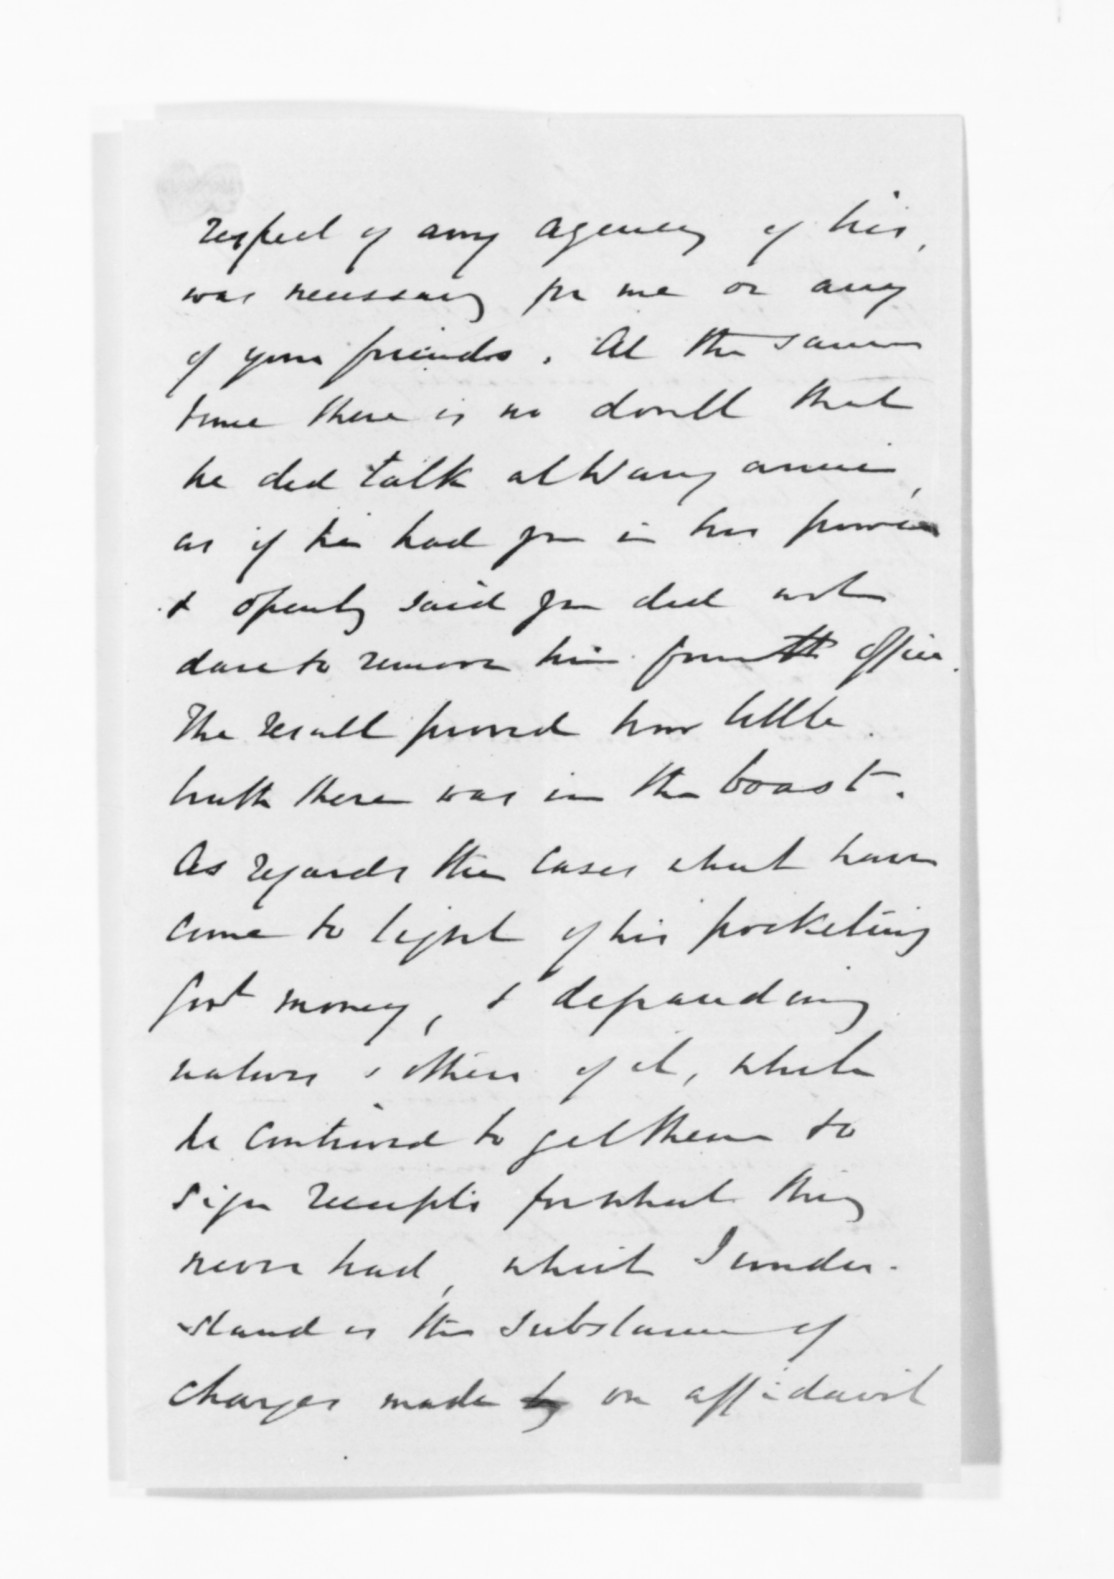 respect of any agency of his,
was necessary for me or any
of your friends. At the same
time there is no doubt that
he did talk at Wanganui,
as if he had you in his power
& openly said you did not
dare to remove him from office.
The result proved how little
truth there was in the boast.
As regards the cases what have
come to light of his pocketing
Govt money, & defrauding
natives & others of it, while
he contrived to get them to
sign receipts for what they
never had, which I under-
stand is the substance of
charges made on affidavit